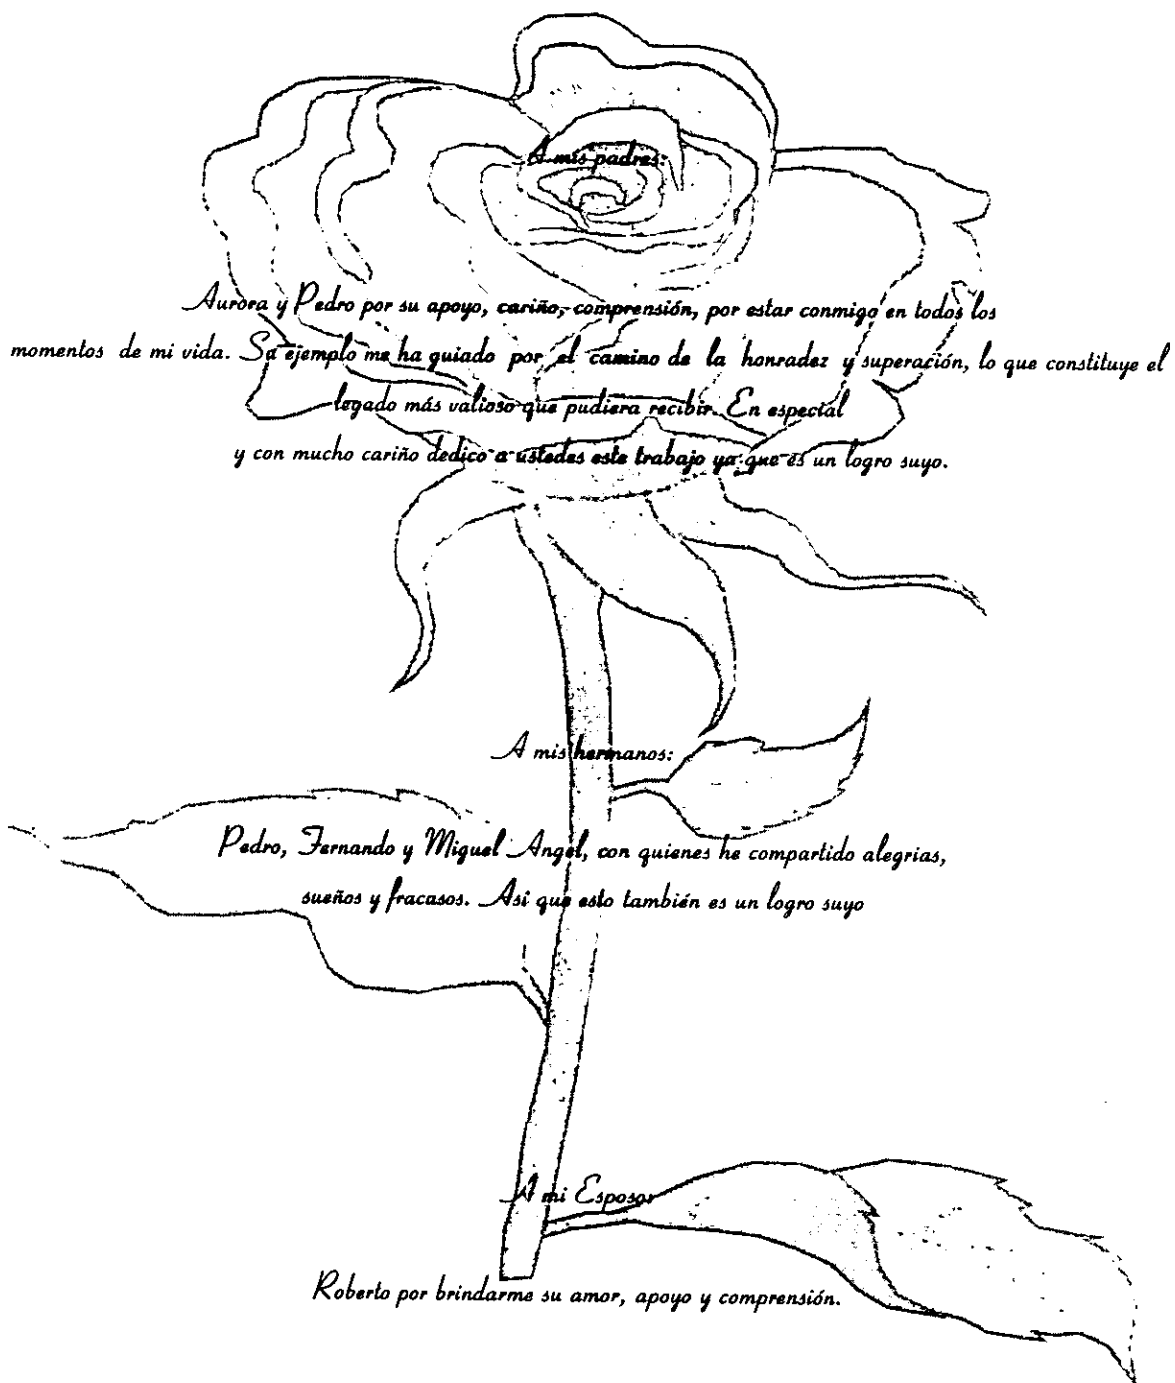 A mis padres:
Aurora y Pedro por su apoyo, cariño, comprensión, por estar conmigo en todos los
momentos de mi vida. Su ejemplo me ha guiado por el camino de la honradez y superación, lo que constituye el
legado más valioso que pudiera recibir. En especial
y con mucho cariño dedico a ustedes este trabajo ya que es un logro suyo.
A mis hermanos:
Pedro, Fernando y Miguel Angel, con quienes he compartido alegrias,
sueños y fracasos. Asi que esto también es un logro suyo
A mi Esposo:
Roberto por brindarme su amor, apoyo y comprensión.